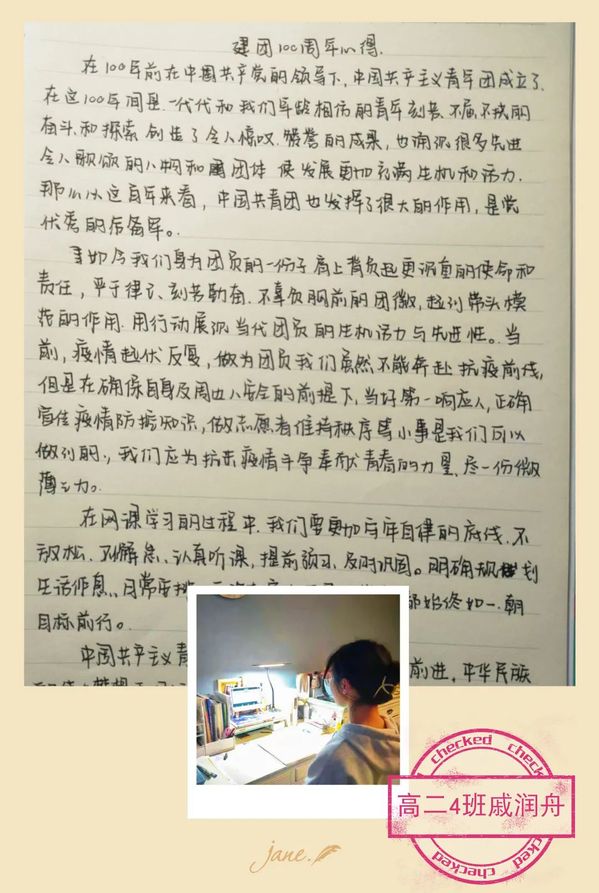 建团100周年心得.
在100年前在中国共产党的领导下,中国共产主义青年团成立了.
在这100年间是一代代和我们年龄相仿的青年刻苦、不屈不挠的
奋斗和探索创造了令人惊叹.赞誉的成果,也涌现很多先进
令人歌颂的人物和团体 使发展更加充满生机和活力.
那么从这百年来看,中国共青团也发挥了很大的作用,是党
优秀的后备军。
如今我们身为团员的一份子肩上背负起更沉重的使命和
责任,严于律己、刻苦勤奋.不辜负胸前的团徽,起到带头模
范的作用.用行动展现当代团员的生机活力与先进性。当
前,疫情起伏反复,做为团员我们虽然不能奔赴抗疫前线,
但是在确保自身及周边人安全的前提下,当好第一响应人,正确
宣传疫情防护知识,做志愿者维持秩序等小事是我们可以
做到的.,我们应为抗击疫情斗争奉献青春的力量.尽一份微
薄之力。
在网课学习的过程中.我们需更加牢牢自律的底线.不
放松、不懈怠、认真听课、提前预习、及时巩固。明确规划
生活作息、日常安排
都始终如一.朝
目标前行。
中国共产主义青
前进,中华民族
checked checked
高二4班戚润舟
checked checked
jane.